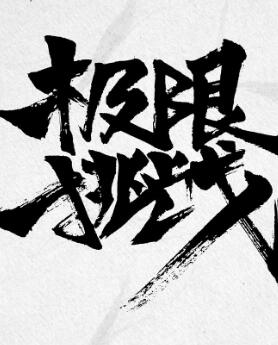 极限
挑战